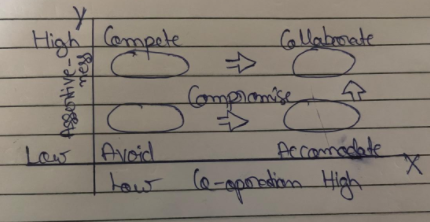 Y
High Compete Collaborate
Assertive-
ness
Compromise
Low Avoid Accomodate
X
Low Co-operation High